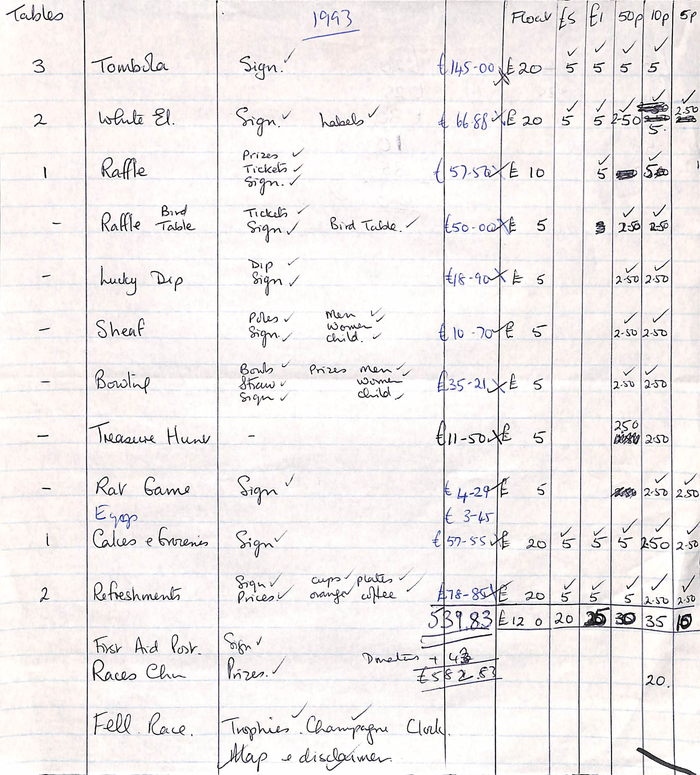 Tables 1993 Float £5 £1 50p 10p 5p
3 Tombola Sign. £145-00 £20 5 5 5 5
2 White El. Sign. Labels £66.88 £20 5 5 2-50 5. 2.50
1 Raffle Prizes Tickets Sign. £57-50 £10 5 5
- Raffle Bird Table Tickets Sign Bird Table. £50-00 £5 2.50 2.50
- Lucky Dip Dip Sign £18-90 £5 2.50 2.50
- Sheaf Poles Sign. Men Women child. £10-70 £5 2.50 2.50
- Bowling Bowls Straw Sign Prizes men women child £35-21 £5 2.50 2.50
- Treasure Hunt - £11-50 £5 2.50 2.50
- Rat Game Sign £4-29 £5 2.50 2.50
Eggs £3-45
1 Cakes e Groceries Sign £57-55 £20 5 5 5 2.50 2.50
2 Refreshments Sign Prices cups plates orange coffee £78-85 £20 5 5 5 2.50 2.50
539.83 £120 20 25 30 35 10
First Aid Post. Sign Donations + 43
Races Prizes. £582.83 20.
Fell Race. Trophies. Champagne Clock.
Map e disclaimer